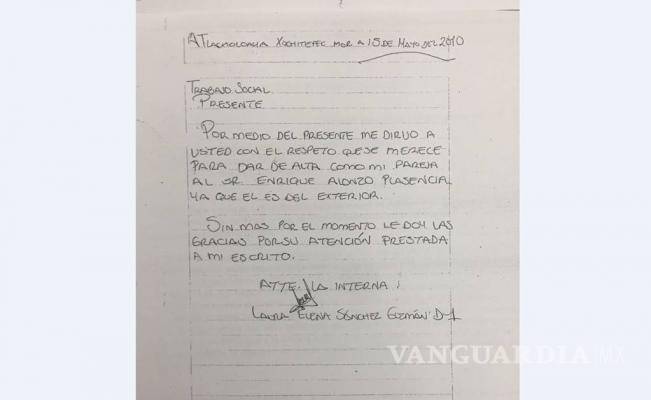 ATLACHOLOAYA XOCHITEPEC MOR A 15 DE MAYO DEL 2010
TRABAJO SOCIAL
PRESENTE
POR MEDIO DEL PRESENTE ME DIRIJO A
USTED CON EL RESPETO QUE SE MERECE
PARA DAR DE ALTA COMO MI PAREJA
AL SR. ENRIQUE ALONZO PLASENCIA
YA QUE EL ES DEL EXTERIOR.
SIN MAS POR EL MOMENTO LE DOY LAS
GRACIAS POR SU ATENCIÓN PRESTADA
A MI ESCRITO.
ATTE. LA INTERNA:
LAURA ELENA SÁNCHEZ GUZMÁN D-1
VANGUARDIA MX